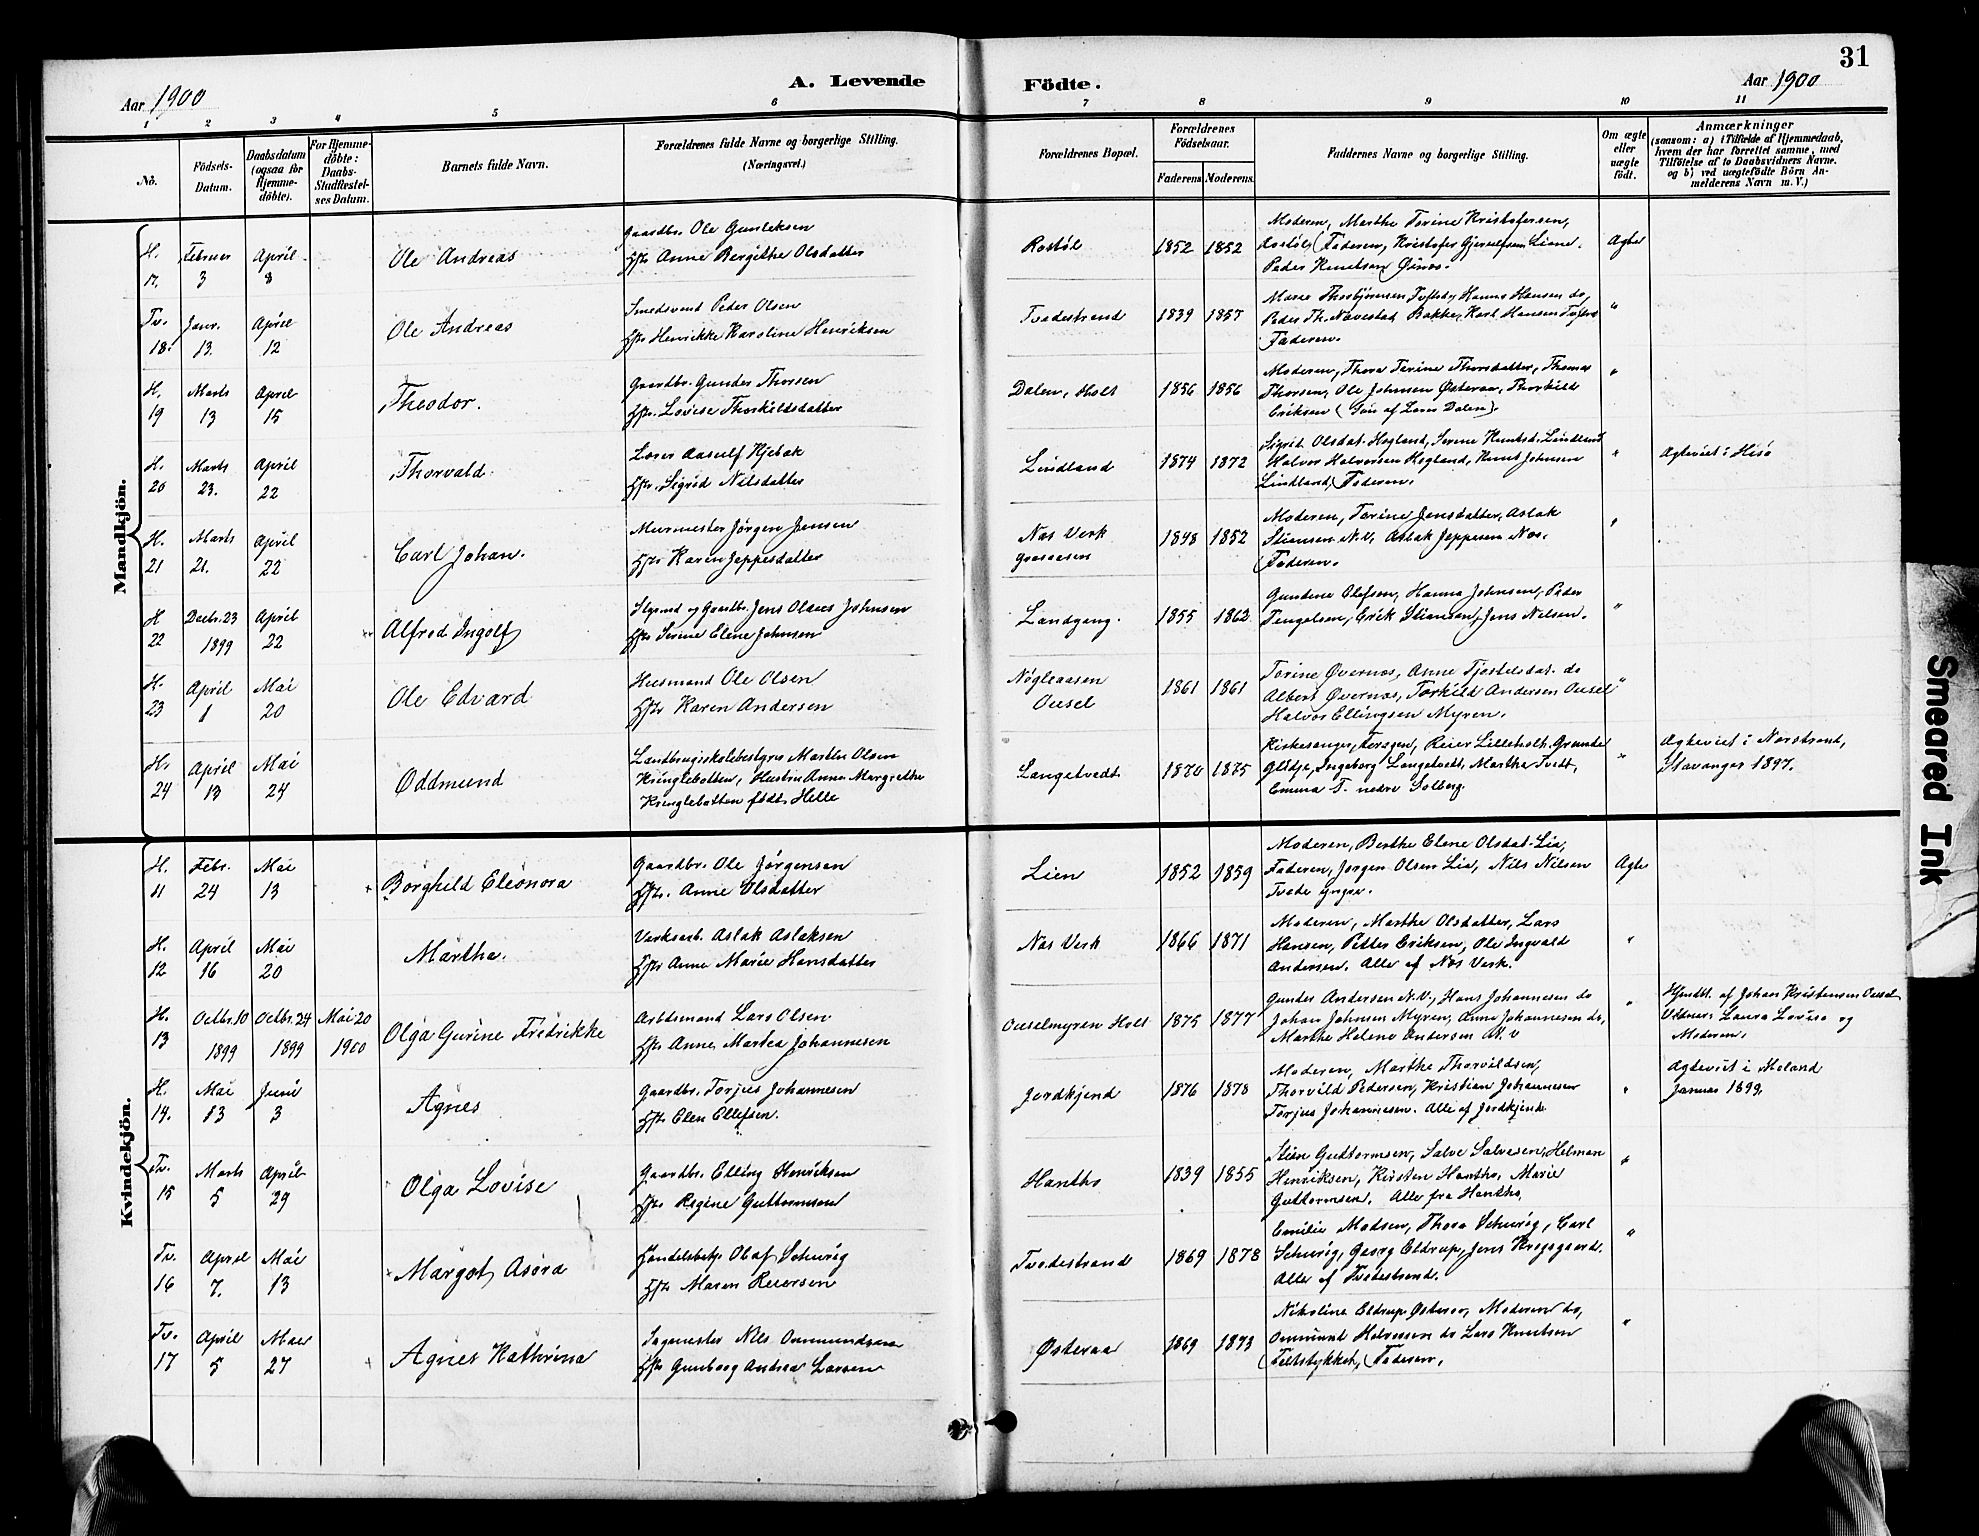 31
A. Levende Födte.
Aar 1900
Aar 1900
1 2 3 4 5 6 7 8 9 10 11
No.
Födsels-Datum.
Daabsdatum (ogsaa for Hjemme-döbte).
For Hjemme-döbte: Daabs-Stadfæstel-ses Datum.
Barnets fulde Navn.
Forældrenes fulde Navne og borgerlige Stilling.
(Næringsvei.)
Forældrenes Bopæl.
Forældrenes Födselsaar.
Faderens. Moderens.
Faddernes Navne og borgerlige Stilling.
Om ægte eller uægte födt.
Anmærkninger
(saasom: a) i Tilfælde af Hjemmedaab,
hvem der har forrettet samme, med
Tilföielse af to Daabsvidners Navne.
og b) ved uægtefödte Börn An-
melderens Navn m. V.)
Mandkjön.
H. 17. Februar 3 April 8 Ole Andreas
Gaardbr. Ole Gunleksen
Hst. Anne Bergithe Olsdatter
Rostøl 1852 1852
Moderen, Marthe Torine Kristofersen,
Rostøl, Faderen, Kristofer Gjerulfsen Liene.
Peder Knutsen Øinæs.
Ægte
Tv. 18. Janr. 13. April 12 Ole Andreas
Smedsvend Peder Olsen
Hst. Henrikke Karoline Henriksen
Tvedestrand 1839 1857
Faderen.
"
H. 19 Marts 13 April 15 Theodor.
Gaardbr. Gunder Thorsen
Hst. Lovise Thorkildsdatter
Dalen, Holt 1856 1856
Moderen, Thora Terine Thorsdatter, Thomas
Thorsen, Ole Johnsen Østeraa, Thorkild
Eriksen (Søn af Lars Dalen).
"
H. 20 Marts 23. April 22 Thorvald.
Lærer Aasulf Kjebæk
Hst. Sigrid Nilsdatter
Lindland 1874 1872
Sigrid Olsdat. Hegland, Serine Knutsd. Lindland
Halvor Halvorsen Hegland, Knut Johnsen
Lindland, Faderen.
"
Ægteviet i Hisø
H. 21 Marts 21. April 22 Carl Johan.
Murmester Jørgen Jensen
Hst. Karen Jeppesdatter
Næs Verk
Graaasen 1848 1852
Moderen, Torine Jensdatter, Aslak
Stiansen N.V. Aslak Jeppesen Næs.
Faderen.
"
H 22 Decbr. 23 1899 April 22 Alfred Ingolf
Jens Olaus Johnsen
Hst. Serine Elene Johnsen
Landgang. 1855 1862
Gundine Olefsen, Hanna Johnsen, Peder
Tengelsen, Erik Stiansen, Jens Nilsen.
"
H. 23 April 1 Mai 20 Ole Edvard
Husmand Ole Olsen
Hst. Karen Andersen
Nøgleaasen
Ousel 1861 1861
Torine Øvernæs, Anne Tjostelsdat. do
Albert Øvernæs, Torkild Andersen Ousel
Halvor Ellingsen Myren.
"
H. 24 April 13 Mai 24 Oddmund
Landbrugsskolebestyrer Martin Olsen
Kringlebotten, Hustru Anne Margrethe
Kringlebotten født Helle
Langetvedt 1870 1875
Kirkesanger Tersgen, Reier Lilleholt. Grunde
Ingeborg Langetvedt, Martha Tvedt,
Emma T. nedre Solberg.
"
Ægteviet i Nærstrand,
Stavanger 1897.
Kvindekjön.
H. 11 Febr. 24 Mai 13 Borghild Eleonora
Gaardbr. Ole Jørgensen
Hst. Anne Olsdatter
Lien 1852 1859
Moderen, Berthe Elene Olsdat. Lia,
Faderen, Jørgen Olsen Lia, Nils Nilsen
Tvede yngre.
Ægte
H. 12 April 16 Mai 20 Martha.
Verksarb. Aslak Aslaksen
Hst. Anne Marie Hansdatter
Næs Verk 1866 1871
Moderen, Marthe Olsdatter, Lars
Hansen, Petter Eriksen, Ole Ingvald
Andersen. Alle af Næs Verk.
"
H. 13 Octbr. 10 1899 Octbr. 24 1899 Mai 20 1900 Olga Gurine Fredrikke
Arbdsmand Lars Olsen
Hst. Anne Martea Johannesen
Ouselmyren Holt 1875 1877
Gunder Andersen N.V., Hans Johannesen do
Johan Johnsen Myren, Anne Johannesen do,
Marthe Helene Andersen N.V
"
Hjmdbt. af Johan Kristensen Ousel
Vidner: Laura Lovise og
Moderen.
H. 14. Mai 13 Juni 3 Agnes
Gaardbr. Torjus Johannesen
Hst. Elen Ellefsen.
Jordkjend 1876 1878
Moderen, Marthe Thorvildsen,
Thorvild Pedersen, Kristian Johannesen
Torjus Johannesen. Alle af Jordkjend.
"
Ægteviet i Moland
Januar 1899.
Tv. 15 Marts 5 April 29 Olga Lovise
Gaardbr. Elling Henriksen
Hst. Regine Guttormsen
Hantho 1839 1855
Stian Guttormsen, Salve Salvesen, Helman
Henriksen, Kirsten Hantho, Marie
Guttormsen. Alle fra Hantho.
"
Tv. 16 April 7. Mai 13 Margot Asora
Handelsbetj. Olaf Schurig
Hst. Maren Reiersen
Tvedestrand 1869 1878
Emilie Madsen, Thora Schurig, Carl
Schurig, Georg Eldrup, Jens Krogsgaard.
Alle af Tvedestrand.
"
Tv. 17 April 5 Mai 27 Agnes Kathrina
Sagmester Nils Ommundsen
Hst. Gunborg Andrea Larsen
Østeraa 1869 1873
Nikoline Eldrup Østeraa, Moderen do,
Ommund Halvorsen do Lars Knutsen
Feltstykket, Faderen.
"
Smeared Ink